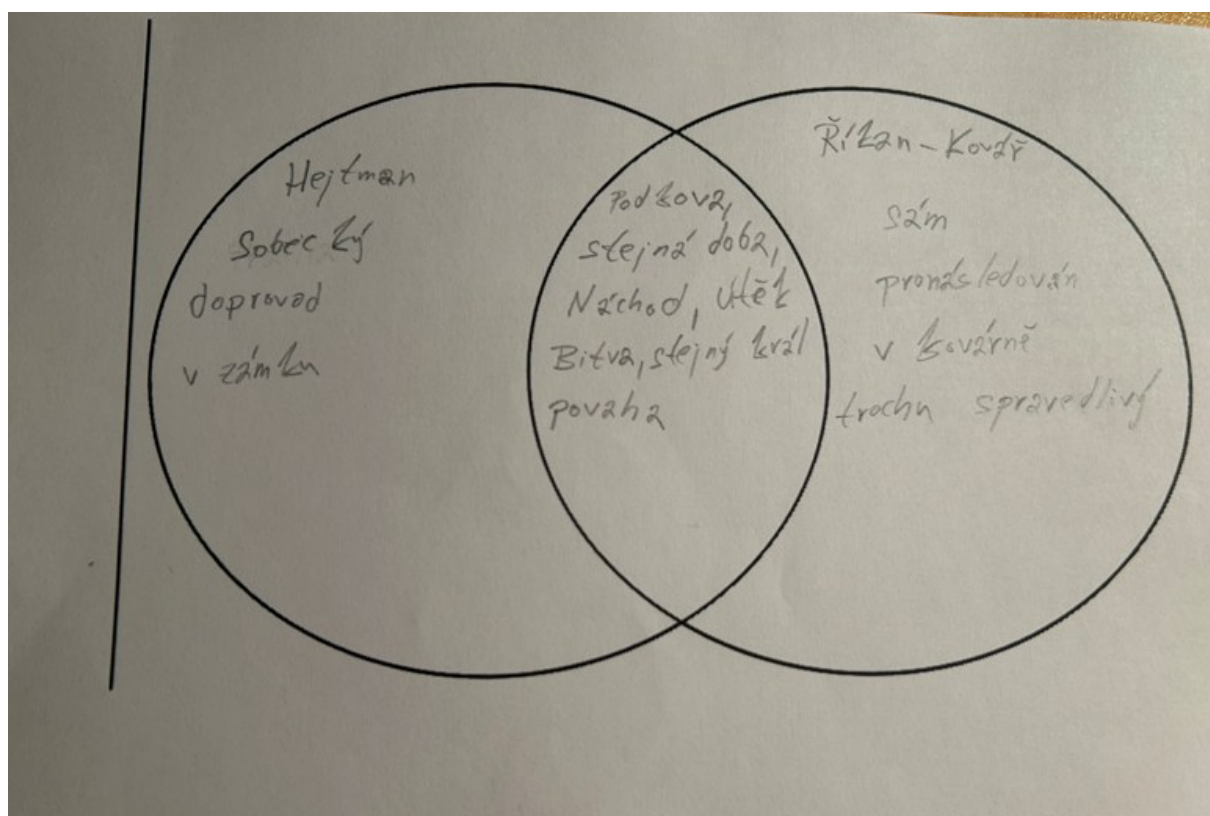 Hejtman
Sobecký
doprovod
v zámku
Podkova,
stejná doba,
Náchod, útěk
Bitva, stejný král
povaha
Říkan - Kovář
sám
pronásledován
v kovárně
trochu spravedlivý